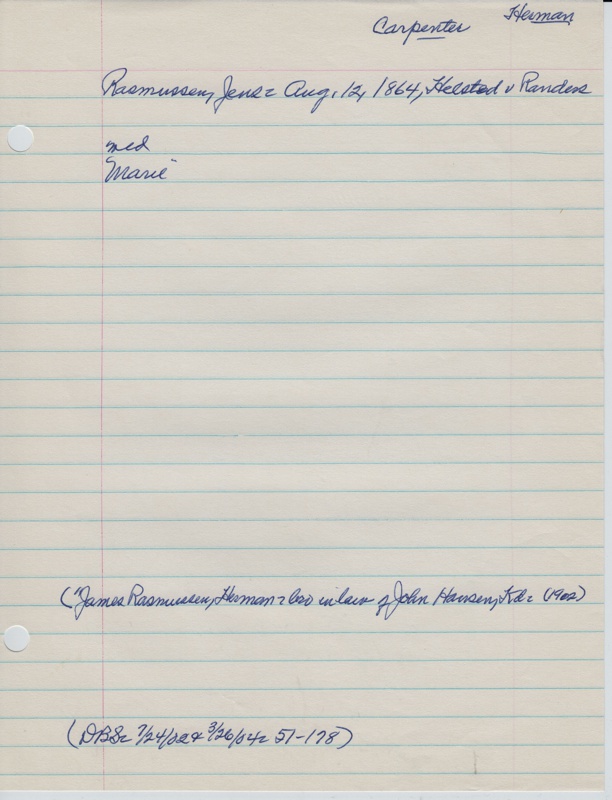 Carpenter Herman
Rasmussen, Jens = Aug. 12, 1864, Helsted v Randers
med
Marie
("James Rasmussen, Herman = bro in law of John Hansen, Kd = (1902)
(DBS = 7/24/02 & 3/26/04 = 51-178)